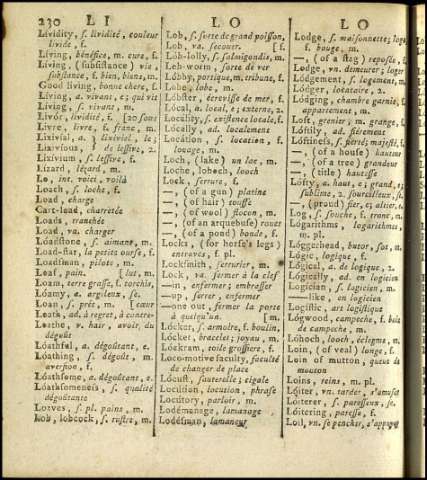 230 L I L O L O
Lividity, s. lividité, couleur
livide, f.
Living, bénéfice, m. cure, f.
Living, (subsistance) vie,
subsistance, f. bien, blanc, m.
Good living, bonne chere, f.
Living, a. vivant, e; qui vit
Living, s. vivant,
Livór, lividité, f. [20 sous
Livre, livre, f. franc, m.
Lixívial, a. lixiviel, le;
Lixívious, de lessive, 2.
Lixivium, s. lessive, f.
Lizard, lézard, m.
Lo, int. voici, voilà
Loach, s. loche, f.
Load, charge
Cart-load, charretée
Loads, tranchée
Load, va. charger
Loádstone, s. aimant, m.
Load-star, la petite ourse, f.
Loádsman, pilote, m.
Loaf, pain. [lut, m.
Loam, terre grasse, f. torchis,
Loámy, a. argileux, se.
Loan, s. prêt, m. [cœur
Loath, ad. à regret, à contre-
Loathe, v. haïr, avoir du
dégoût
Loáthful, a. dégoûtant, e.
Loáthing, s. dégoût, m.
aversion, f.
Loáthsome, a. dégoûtant, e.
Loáthsomeness, s. qualité
dégoûtante
Loaves, s. pl. pains, m.
Lob, lobcock, s. rustre, m.
Lob, s. sorte de grand poisson,
Lob, va. secouer. [f.
Lob-lolly, s. salmigondis, m.
Lob-worm, sorte de ver
Lóbby, portique, m. tribune, f.
Lobe, lobe, m.
Lóbster, écrevisse de mer, f.
Lócal, a. local, e; externe, 2.
Locálity, s. existence locale, f.
Locally, ad. localement
Locátion, s. location, f.
louage, m.
Loch, (lake) un loc, m.
Loche, lohoch, looch
Lock, serrure, f.
—, (of a gun) platine
—, (of hair) touffe
—, (of wool) flocon, m.
—, (of an arquebuse) rouet
—, (of a pond) bonde, f.
Locks, (for horse's legs)
entraves, f. pl.
Locksmith, serrurier, m.
Lock, va. fermer à la clef
—in, enfermer; embrasser
—up, serrer, enfermer
—one out, fermer la porte
à quelqu'un. [m.
Lócker, s. armoire, f. boulin,
Lócket, bracelet; joyau, m.
Lóckram, toile grossiere, f.
Loco-motive faculty, faculté
de changer de place
Lócust, sauterelle; cigale
Locútion, locution, phrase
Locutory, parloir, m.
Lodémanage, lamanage
Lodésman, lamaneur
Lodge, s. maisonnette; loge,
f. bouge, m.
—, (of a stag) reposée, f.
Lodge, vn. demeurer; loger
Lódgement, s. logement, m.
Lódger, locataire, 2.
Lódging, chambre garnie, f.
appartement, m.
Loft, grenier, m. grange, f.
Lóftily, ad. fièrement
Lóftiness, s. fierté; majesté, f.
—, (of a house) hauteur
—, (of a tree) grandeur
—, (title) hautesse
Lófty, a. haut, e; grand, e;
sublime, 2. sourcilleux, se
—, (proud) fier, e; altier, e
Log, s. souche, f. tronc, m.
Logarithms, logarithmes,
m. pl.
Lóggerhead, butor, sot, m.
Lógic, logique, f.
Lógical, a. de logique, 2.
Logically, ad. en logicien
Logician, s. logicien, m.
——like, en logicien
Logistic, art logistique
Lógwood, campeche, f. bois
de campeche, m.
Lohoch, looch, éclegme, m.
Loin, (of veal) longe, f.
Loin of mutton, queue de
mouton
Loins, reins, m. pl.
Lóiter, vn. tarder, s'amuser
Lóiterer, s. paresseux, se.
Lóitering, paresse, f.
Loll, vn. se pencher, s'appuyer